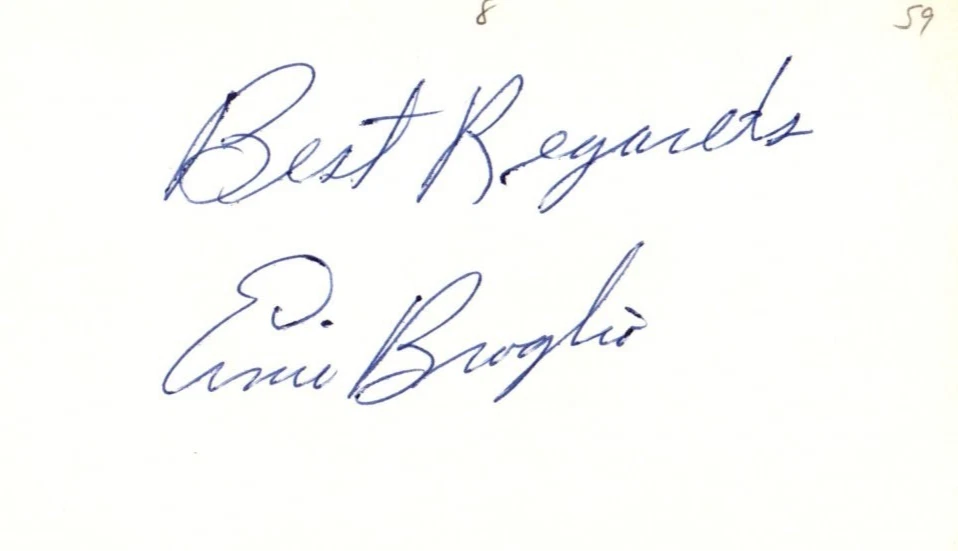 8 59
Best Regards
Ernie Broglio